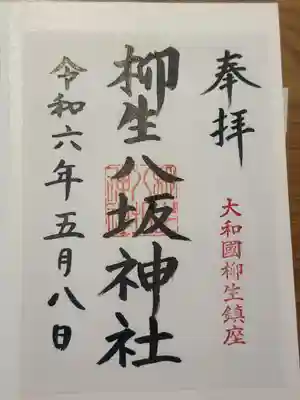 奉拝
大和國柳生鎮座
柳生八坂神社
令和六年五月八日